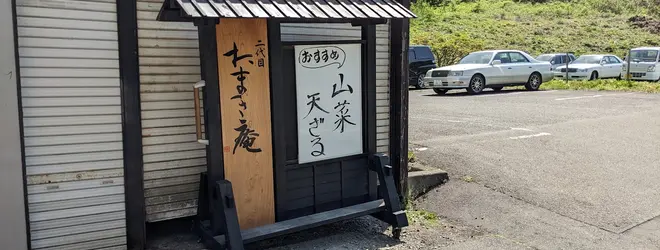 二代目
たまき庵
おすすめ
山菜
天ざる